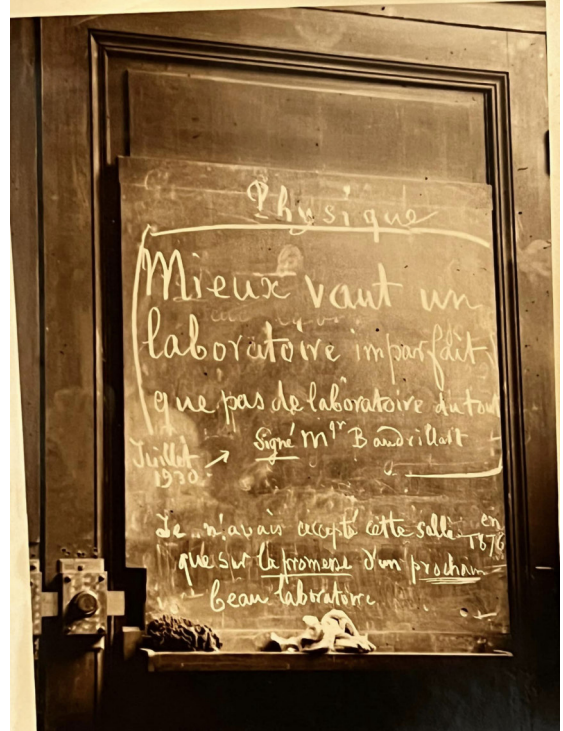 Physique
Mieux vaut un
laboratoire imparfait
que pas de laboratoire du tout
Signé Mgr Baudrillart
Juillet
1930.
Je n'avais accepté cette salle en
1876
que sur la promesse d'un prochain
beau laboratoire